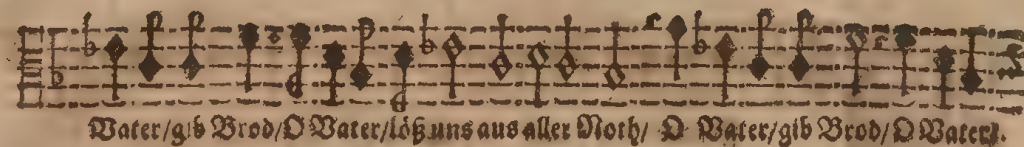 Vater/gib Brod/O Vater/löß uns aus aller Noth/ O Vater/gib Brod/O Vater/.